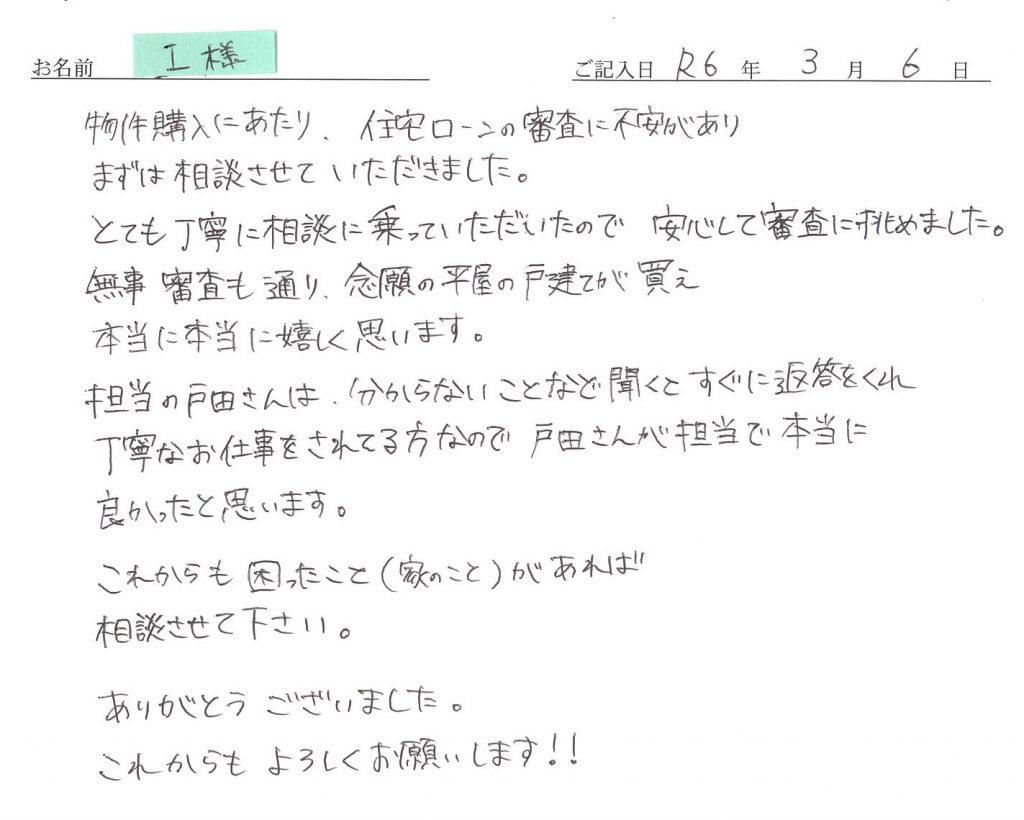 お名前 I様 ご記入日 R6 年 3 月 6 日
物件購入にあたり、住宅ローンの審査に不安があり
まずは相談させていただきました。
とても丁寧に相談に乗っていただいたので 安心して審査に挑めました。
無事 審査も通り、念願の平屋の戸建てが買え
本当に本当に嬉しく思います。
担当の戸田さんは、分からないことなど聞くとすぐに返答をくれ
丁寧なお仕事をされてる方なので戸田さんが担当で本当に
良かったと思います。
これからも困ったこと(家のこと)があれば
相談させて下さい。
ありがとうございました。
これからもよろしくお願いします!!